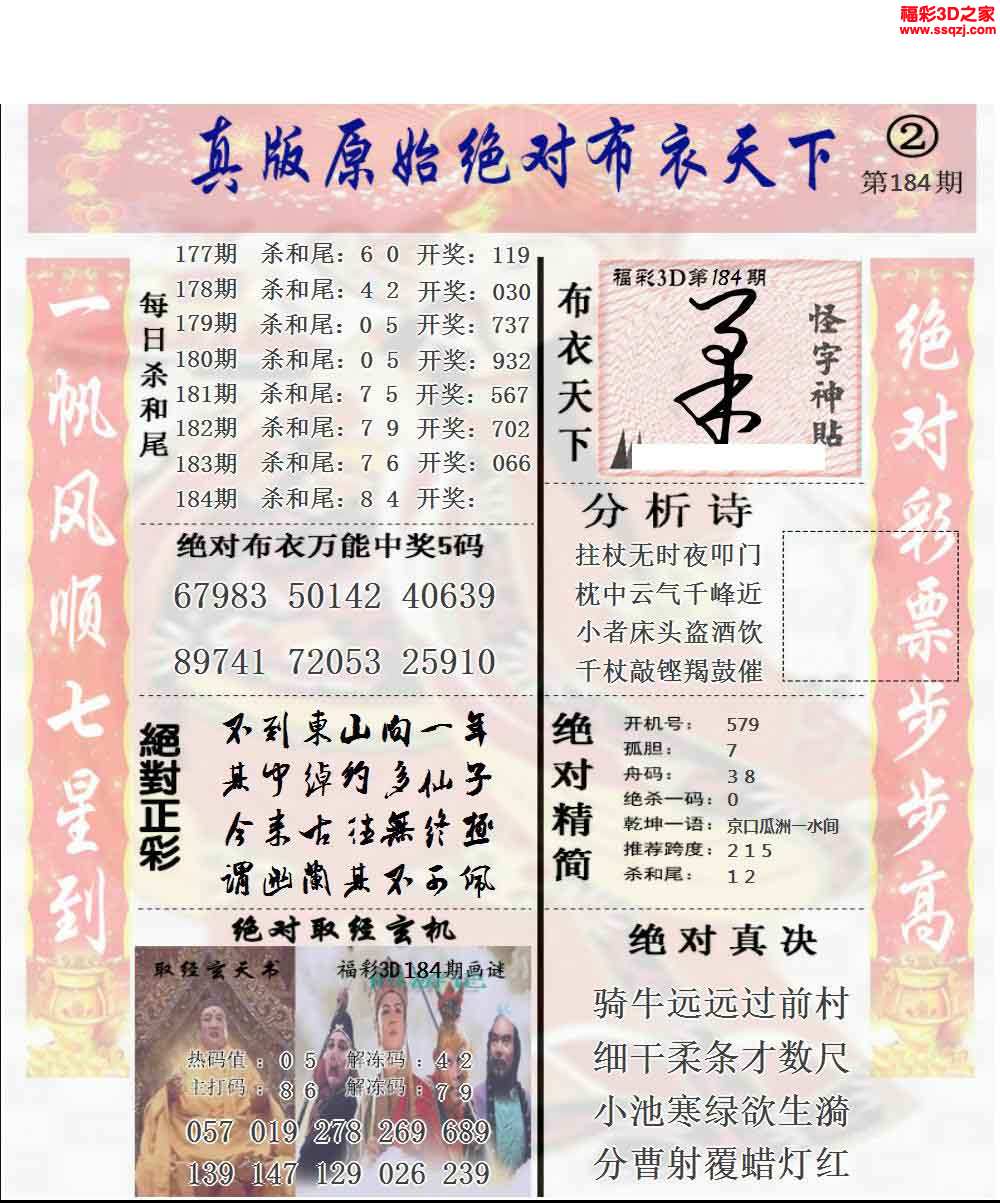 福彩3D之家
www.ssqzj.com
真版原始绝对布衣天下
②
第184期
一帆风顺七星到
每日杀和尾
177期 杀和尾：6 0 开奖：119
178期 杀和尾：4 2 开奖：030
179期 杀和尾：0 5 开奖：737
180期 杀和尾：0 5 开奖：932
181期 杀和尾：7 5 开奖：567
182期 杀和尾：7 9 开奖：702
183期 杀和尾：7 6 开奖：066
184期 杀和尾：8 4 开奖：
绝对布衣万能中奖5码
67983 50142 40639
89741 72053 25910
絕對正彩
不到東山向一年
其中绰约多仙子
今来古往無终极
谓幽蘭其不可佩
绝对取经玄机
取经玄天书
福彩3D184期画谜
热码值：0 5 解冻码：4 2
主打码：8 6 解冻码：7 9
057 019 278 269 689
139 147 129 026 239
布衣天下
福彩3D第184期
怪字神貼
分析诗
拄杖无时夜叩门
枕中云气千峰近
小者床头盗酒饮
千杖敲铿羯鼓催
绝对精简
开机号： 579
孤胆： 7
舟码： 3 8
绝杀一码：0
乾坤一语：京口瓜洲一水间
推荐跨度：2 1 5
杀和尾： 1 2
绝对真决
骑牛远远过前村
细干柔条才数尺
小池寒绿欲生漪
分曹射覆蜡灯红
绝对彩票步步高